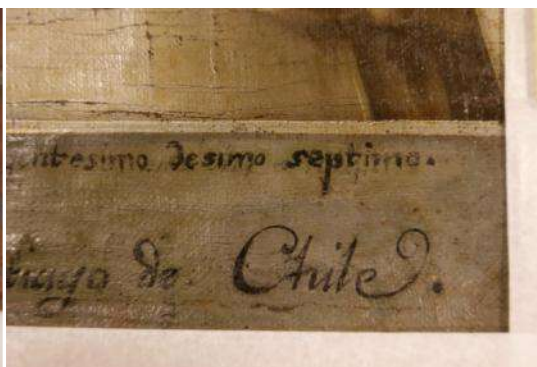 gentesimo Desimo septimo.
tiago de Chile.